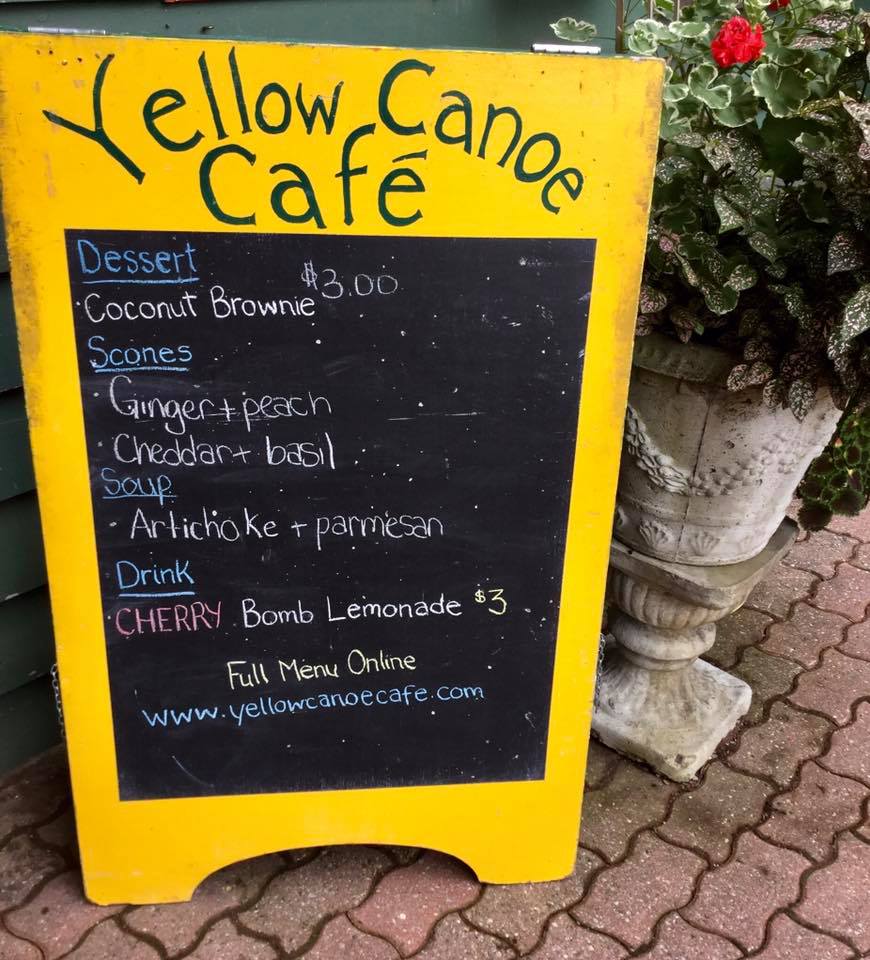 Yellow Canoe
Café
Dessert
Coconut Brownie $3.00
Scones
· Ginger + peach
· Cheddar + basil
Soup
· Artichoke + parmesan
Drink
· CHERRY Bomb Lemonade $3
Full Menu Online
www.yellowcanoecafe.com